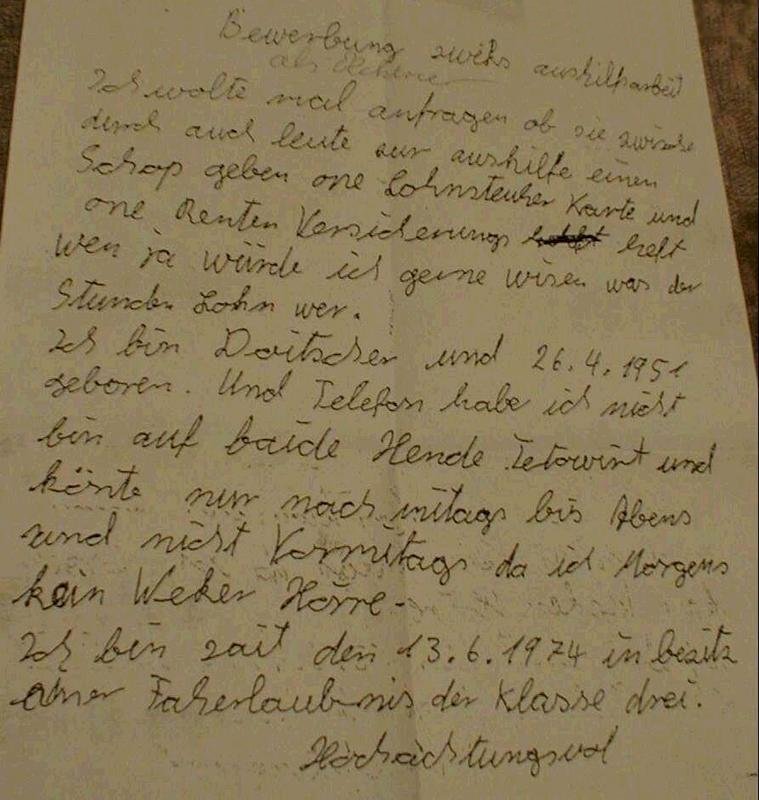 Bewerbung zweks aushilfsarbeit
als
Ich wolte mal anfragen ob sie zwische
durch auch leute zur aushilfe einen
Schop geben one Lohnsteuher Karte und
one Renten Versicherungs heft
wen ja würde ich gerne wisen was der
Stunden Lohn wer.
Ich bin Doitscher und 26.4.1951
geboren. Und Telefon habe ich nicht
bin auf baide Hende Tetowirt und
könte nur nach mitags bis Abens
und nicht Vormitags da ich Morgens
kein Weker Hörre-
Ich bin sait den 13.6.1974 in besitz
ainer Faherlaubnis der Klasse drei.
Hochachtungsvol